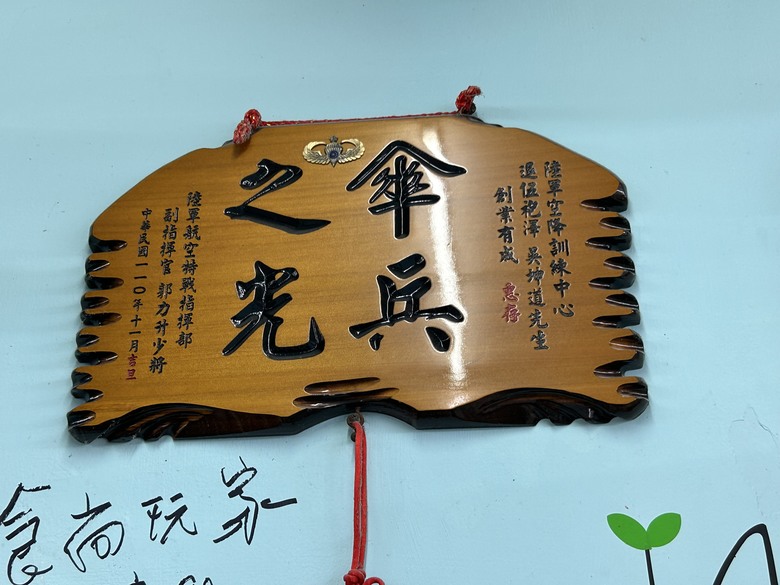 陸軍空降訓練中心
退伍袍澤 吳坤道先生
創業有成 惠存
傘兵
之光
陸軍航空特戰指揮部
副指揮官 郭力升少將
中華民國一一〇年十一月吉旦
食尚玩家